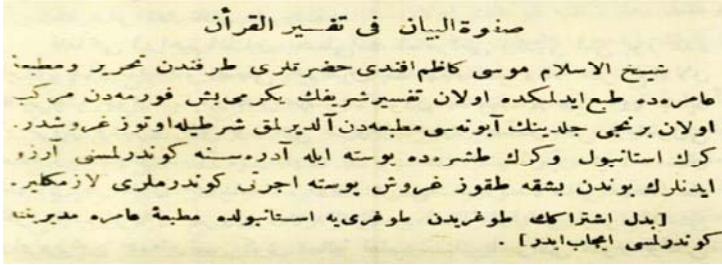 صفوة البيان فى تفسير القرأن
شيخ الاسلام موسى كاظم افندى حضرتلرى طرفندن تحرير ومطبعۀ
عامره‌ده طبع ايدلمكده اولان تفسير شريفك يكرمى بش فورمه‌دن مركب
اولان برنجى جلدينك آبونه‌سى مطبعه‌دن آلديرلمق شرطيله اوتوز غروشدر.
كرك استانبول وكرك طشره‌ده پوسته ايله آدره‌سنه كوندرلمسنى آرزو
ايدنلرك بوندن بشقه طقوز غروش پوسته اجرتى كوندرملرى لازمكلير.
[بدل اشتراكك طوغريدن طوغرى‌يه استانبولده مطبعۀ عامره مديريتنه
كوندرلمسى ايجاب ايدر].